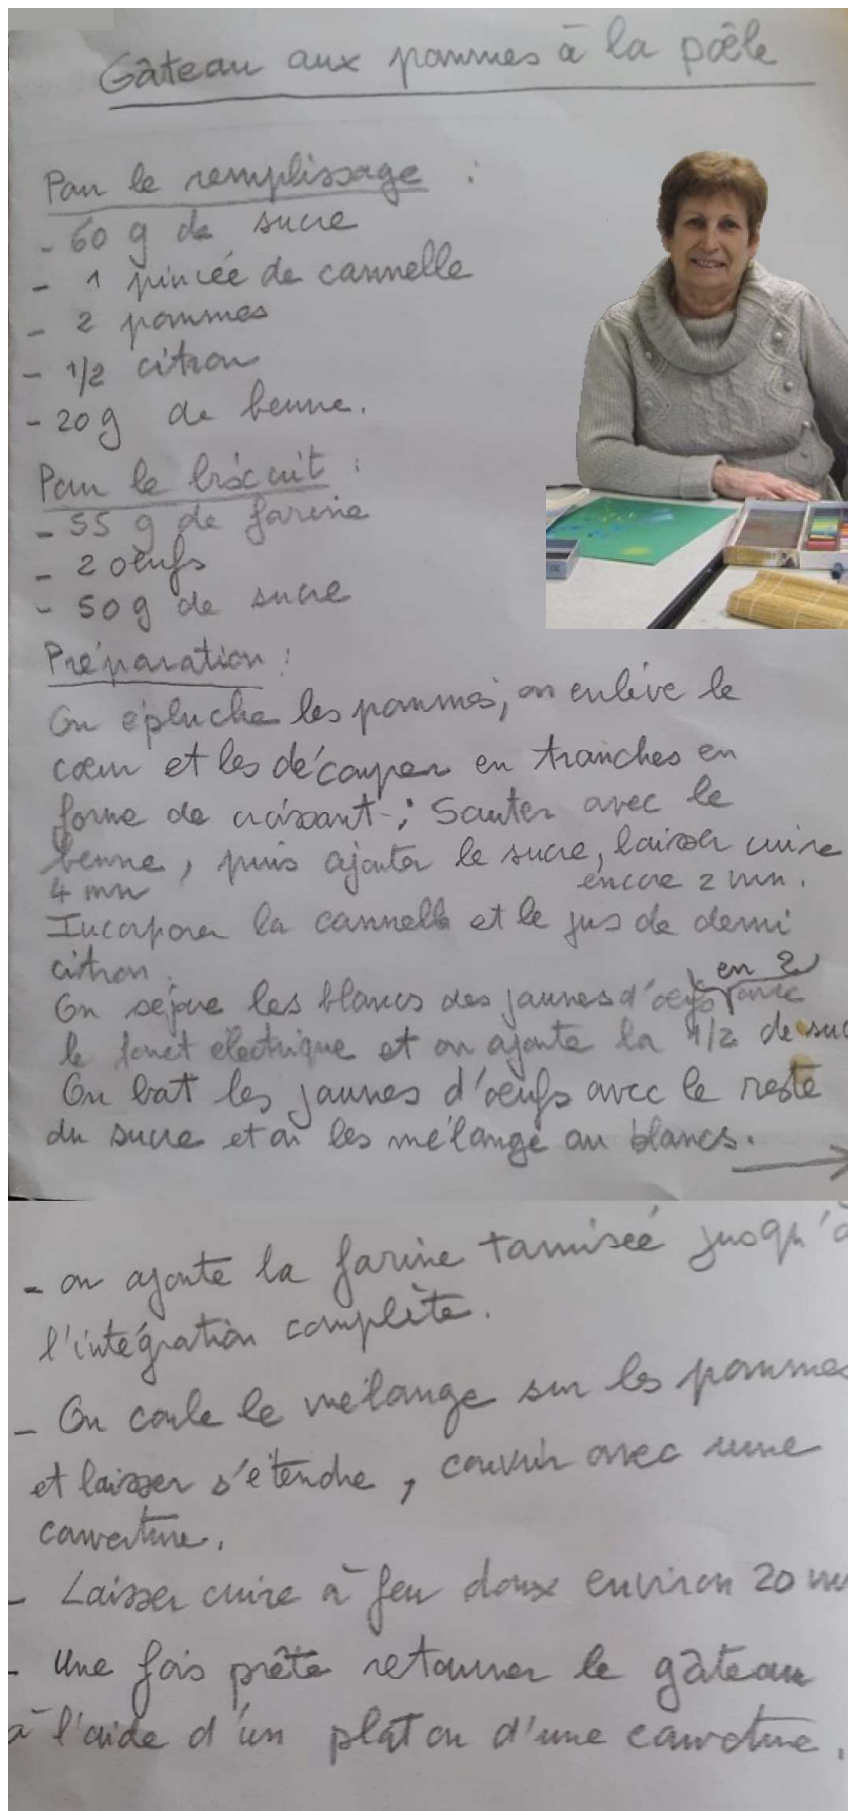 Gâteau aux pommes à la poêle
Pour le remplissage :
- 60 g de sucre
- 1 pincée de cannelle
- 2 pommes
- 1/2 citron
- 20 g de beurre.
Pour le biscuit :
- 55 g de farine
- 2 oeufs
- 50 g de sucre
Préparation :
On épluche les pommes, on enlève le
cœur et les découper en tranches en
forme de croissant ; Sauter avec le
beurre, puis ajouter le sucre, laisser cuire
4 mn encore 2 mn.
Incorporer la cannelle et le jus de demi
citron.
en 2
On sépare les blancs des jaunes d'oeufs avec
le fouet électrique et on ajoute la 1/2 de suc
On bat les jaunes d'oeufs avec le reste
du sucre et on les mélange au blancs.
- on ajoute la farine tamisée jusqu'à
l'intégration complète.
- On coule le mélange sur les pommes
et laisser s'étendre, couvrir avec une
couverture.
- Laisser cuire à feu doux environ 20 mn
- Une fois prête retourner le gâteau
à l'aide d'un plat ou d'une couverture.